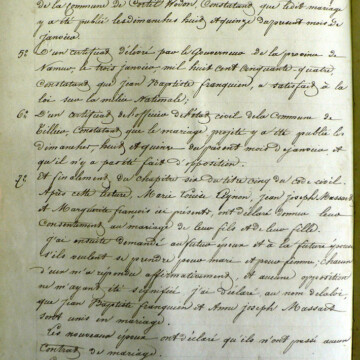 de la commune de Cortil Wodon, Constatant que ledit mariage
y a été publié les dimanches huit et quinze du présent mois de
Janvier.
5° D'un certificat délivré par le Gouverneur de la province de
Namur, le trois Janvier mil huit cent cinquante-quatre,
Constatant que Jean Baptiste franquien, a satisfait à la
loi sur la milice Nationale;
6° D'un certificat de l'officier de l'état civil de la Commune de
Tillier, Constatant que le mariage projeté y a été publié les
dimanches, huit et quinze du présent mois de Janvier et
qu'il n'y a pas été fait d'opposition.
7° Et finalement du Chapitre six du titre cinq du code civil.
Après cette lecture, Marie Louise, Jean Joseph Massart
et Marguerite françois ici présents, ont déclaré donner leur
Consentement au mariage de leur fils et de leur fille.
J'ai ensuite demandé au futur époux et à la future épouse
s'ils veulent se prendre pour mari et pour femme; Chacun
d'eux m'a répondu affirmativement, et aucune opposition
ne m'ayant été signifiée j'ai déclaré au nom de la loi,
que Jean Baptiste franquien et Anne Joseph Massart
sont unis en mariage.
Les nouveaux époux ont déclaré qu'ils n'ont passé aucun
Contrat de mariage.